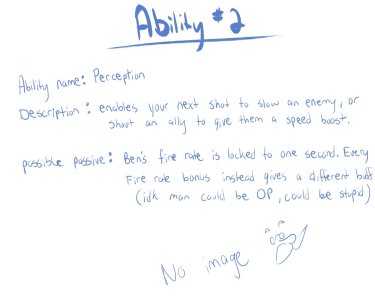 Ability #2
Ability name: Perception
Description: enables your next shot to slow an enemy, or
shoot an ally to give them a speed boost.
possible passive: Ben's fire rate is locked to one second. Every
Fire rate bonus instead gives a different buff
(idk man could be OP, could be stupid)
No image